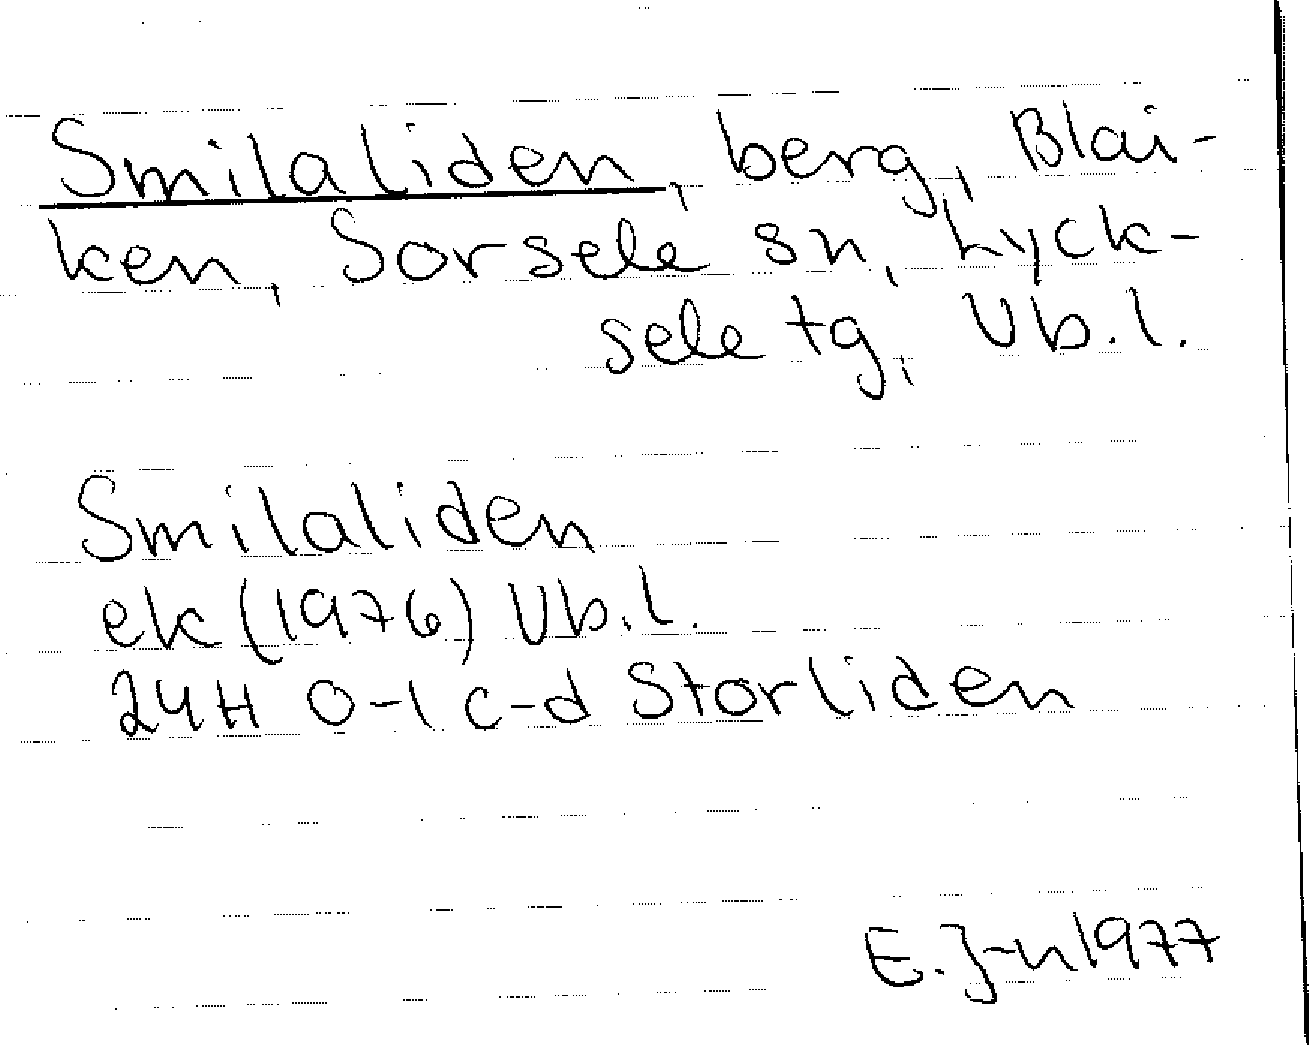 Smilaliden, berg, Blai-
ken, Sorsele sn, Lyck-
sele tg, Vb.l.
Smilaliden
ek (1976) Vb.l.
24H 0-1 c-d Storliden
E. J-n 1977